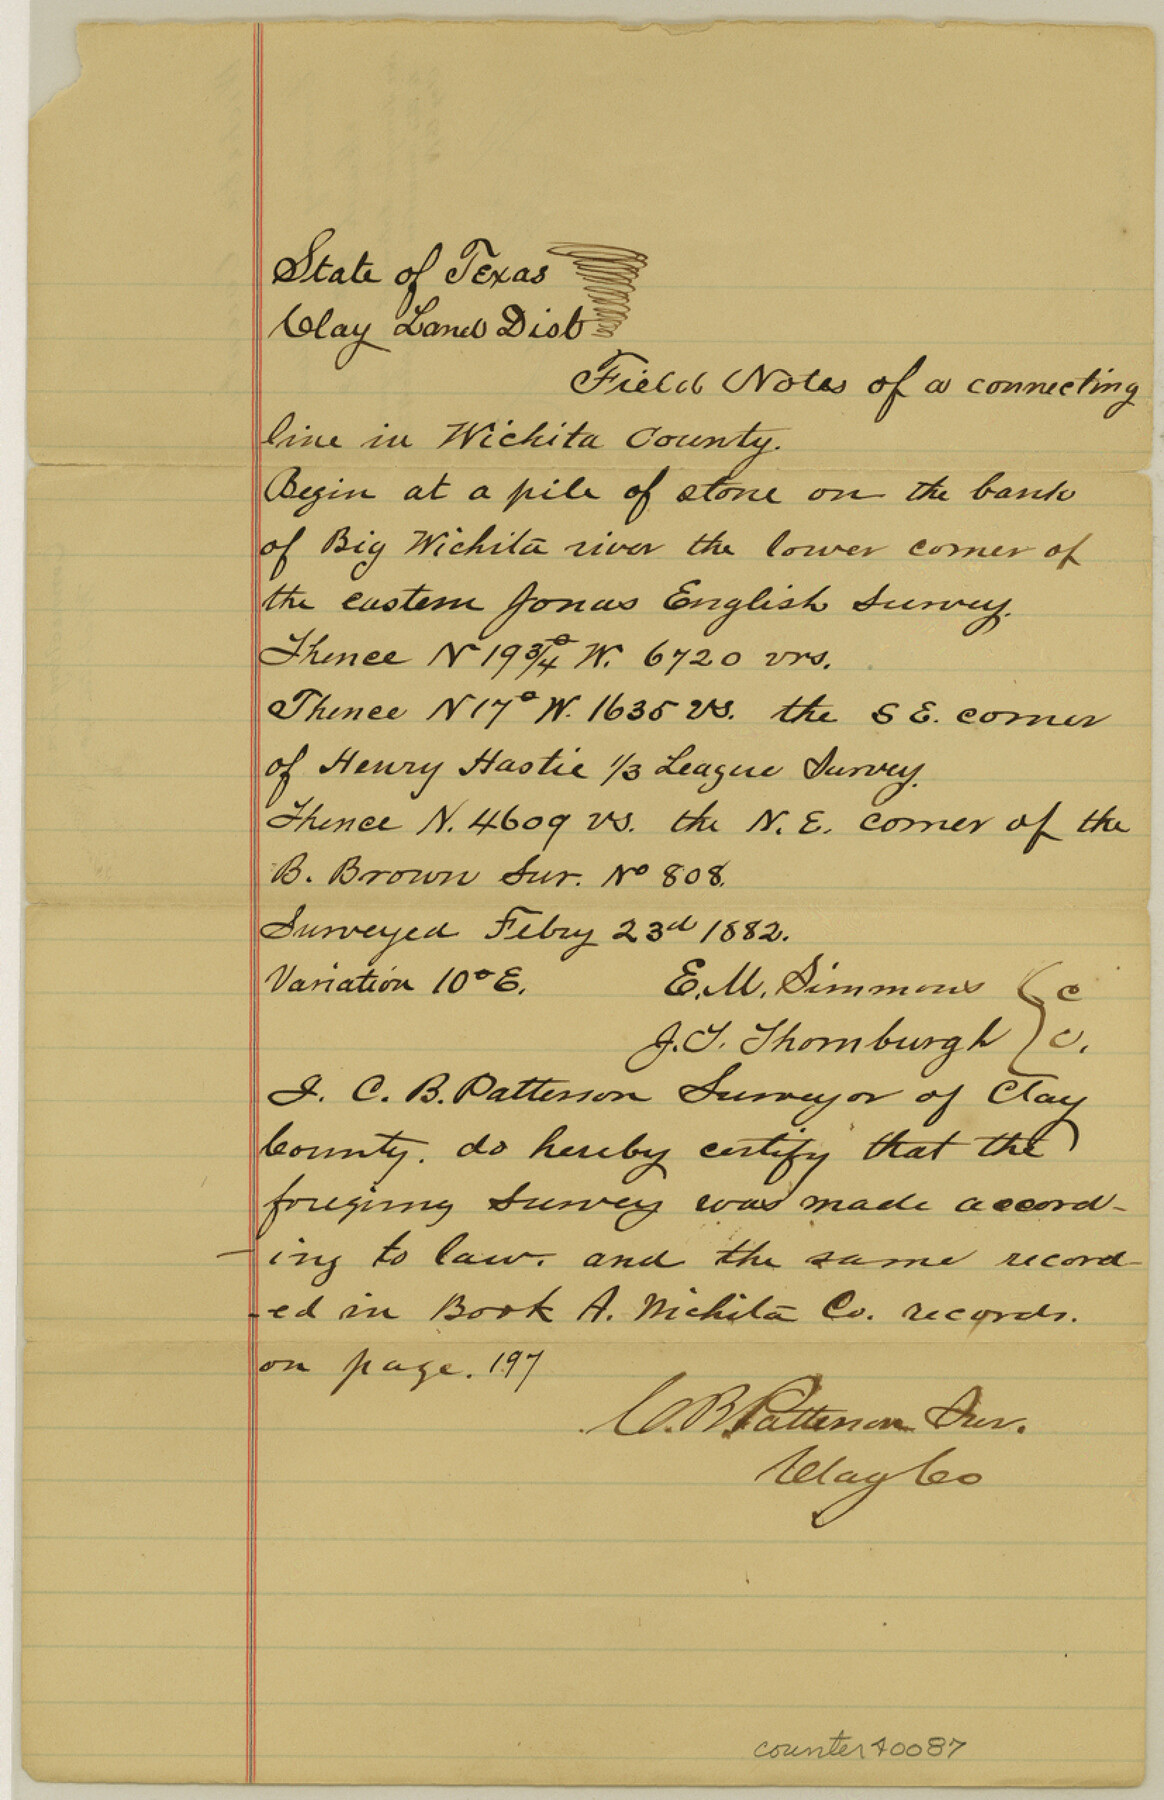 State of Texas
Clay Land Dist
Field Notes of a connecting
line in Wichita County.
Begin at a pile of stone on the bank
of Big Wichita river the lower corner of
the eastern Jonas English Survey.
Thence N 19 3/4° W. 6720 vrs.
Thence N 17° W. 1635 vs. the S E. corner
of Henry Hastie 1/3 League Survey.
Thence N. 4609 vs. the N. E. corner of the
B. Brown Sur. No 808.
Surveyed Febry 23d 1882.
Variation 10° E. E. M. Simmons } C
J. T. Thornburgh } C.
I. C. B. Patterson Surveyor of Clay
County. do hereby certify that the
foregoing survey was made accord-
ing to law. and the same record-
-ed in Book A. Wichita Co. records.
on page. 197
C. B. Patterson Sur.
Clay Co
counter 40087